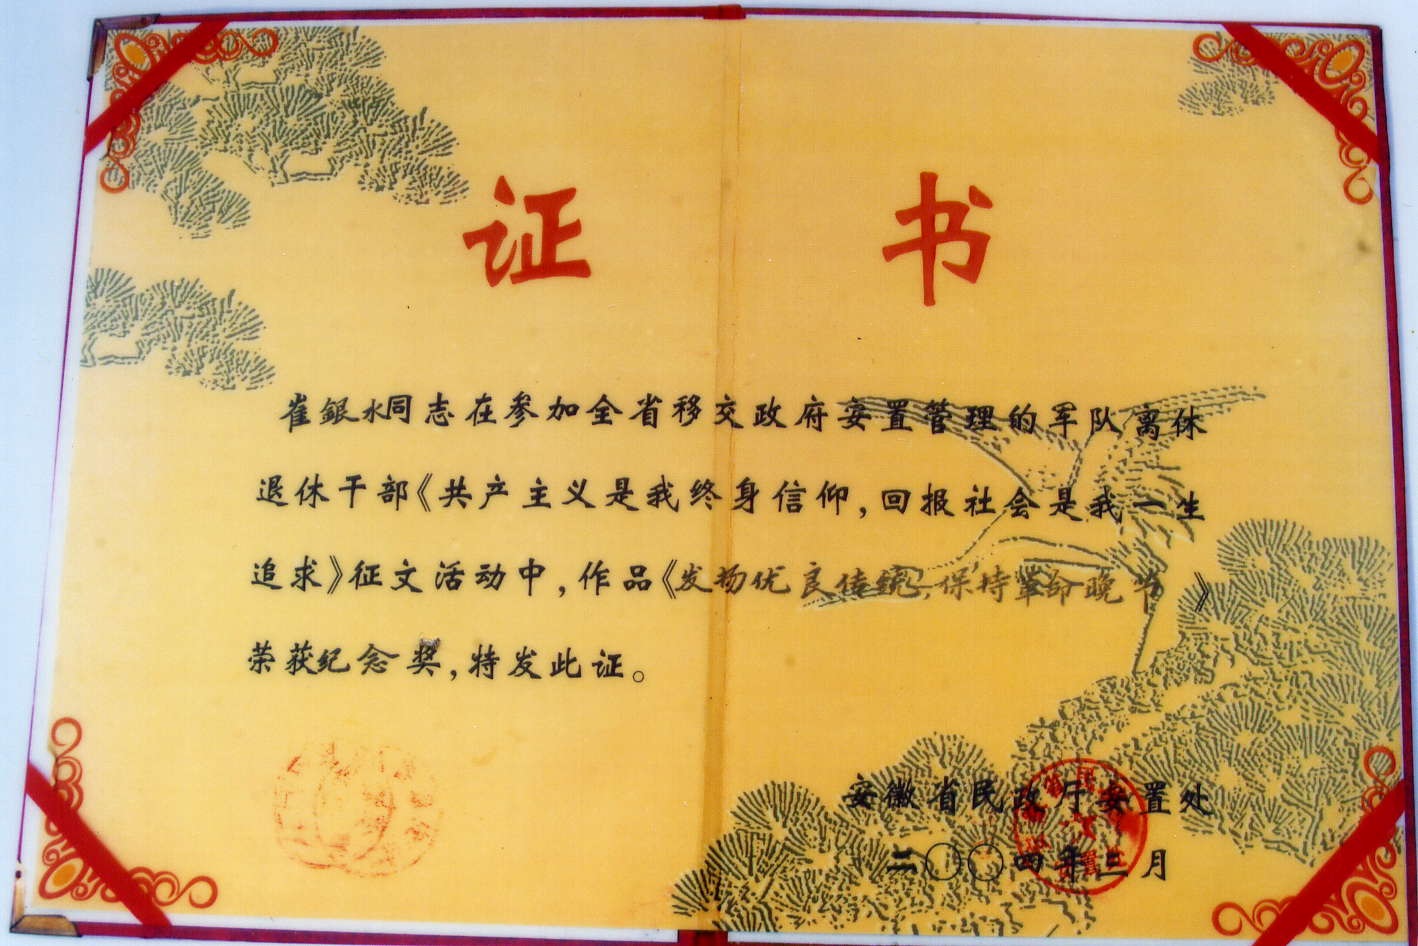 证书
崔銀水同志在参加全省移交政府安置管理的军队离休
退休干部《共产主义是我终身信仰,回报社会是我一生
追求》征文活动中,作品《发扬优良传统,保持革命晚节》
荣获纪念奖,特发此证。
安徽省民政厅安置处
二〇〇四年三月